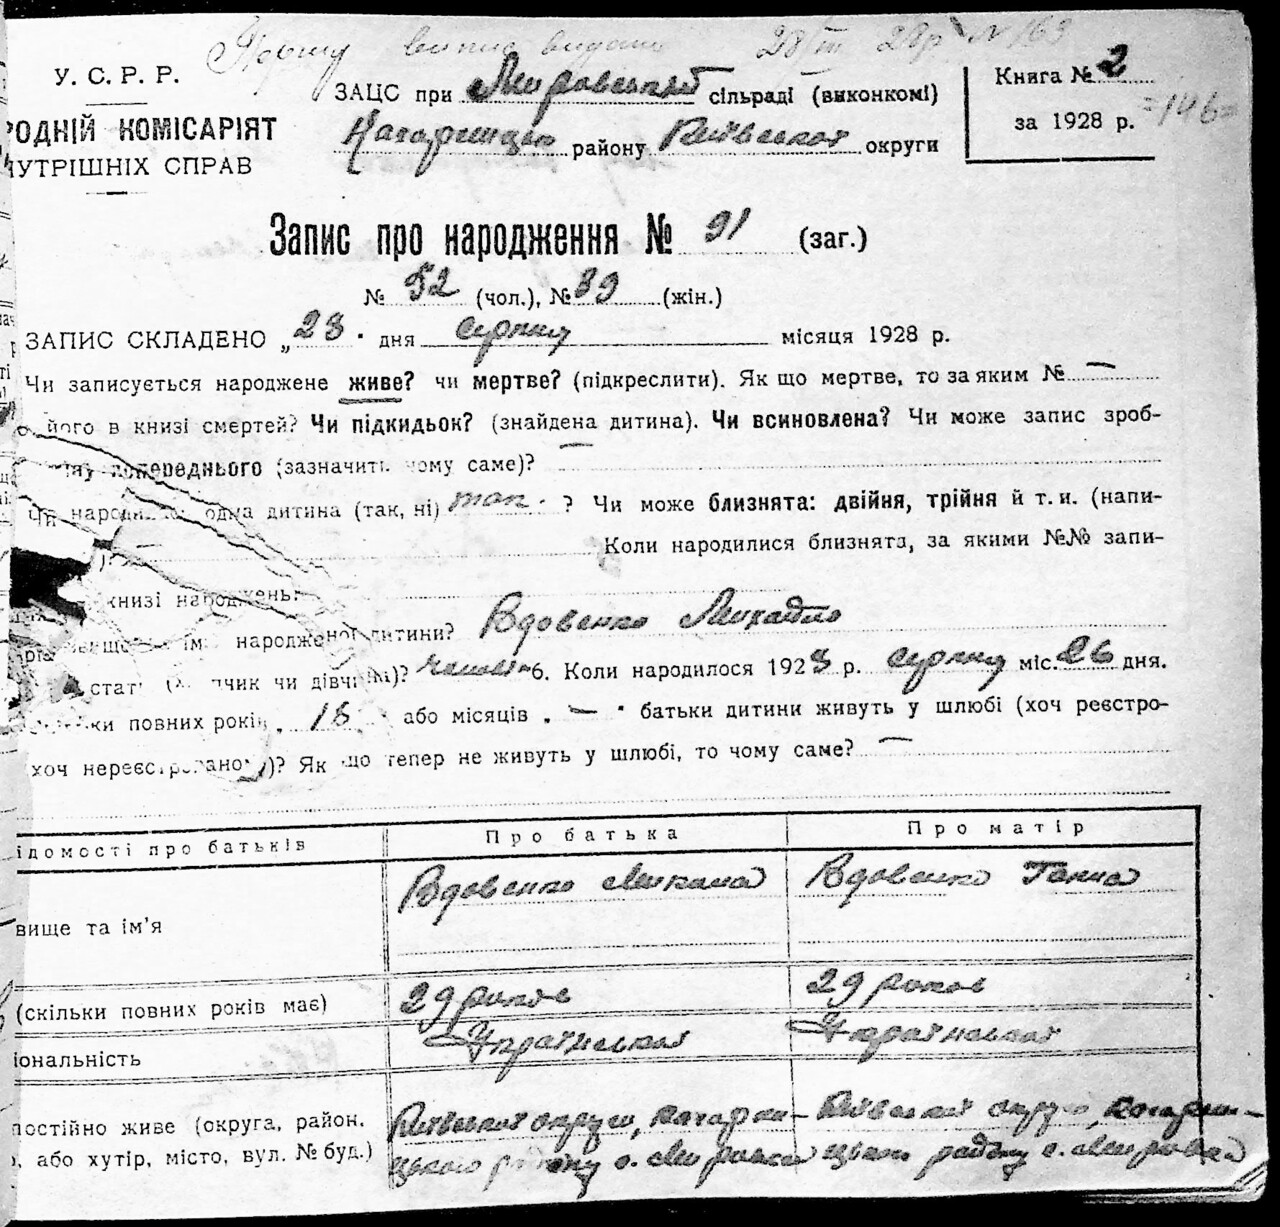 Першу випис видано 28/III 29р. №163
У. С. Р. Р.
ЗАЦС при Мировській сільраді (виконкомі)
Книга № 2
=146=
РОДНІЙ КОМІСАРІЯТ
Кагарлицько району Київської округи
за 1928 р.
НУТРІШНІХ СПРАВ
Запис про народження № 91 (заг.)
№ 52 (чол.), № 39 (жін.)
ЗАПИС СКЛАДЕНО „28" дня серпня місяця 1928 р.
Чи записується народжене живе? чи мертве? (підкреслити). Як що мертве, то за яким № —
його в книзі смертей? Чи підкидьок? (знайдена дитина). Чи всиновлена? Чи може запис зроб-
попереднього (зазначить чому саме)? —
Чи народи одна дитина (так, ні) так. ? Чи може близнята: двійня, трійня й т. и. (напи-
Коли народилися близнята, за якими №№ запи-
книзі народжень:
ім народженої дитини? Вдовенко Михайло
стать чик чи дівч )? 6. Коли народилося 1928 р. серпня міс. 26 дня.
ки повних років 18 або місяців „ — " батьки дитини живуть у шлюбі (хоч реєстро-
хоч нереєстрованому)? Як що тепер не живуть у шлюбі, то чому саме? —
ідомості про батьків
Про батька
Про матір
вище та ім'я
Вдовенко Микола
Вдовенко Ганна
(скільки повних років має)
29 років
29 років
іональність
Українська
Українська
постійно живе (округа, район,
Київської округи, Кагарли-
Київської округи, Кагарли-
, або хутір, місто, вул. № буд.)
цького району с. Мировка
цького району с. Мировка